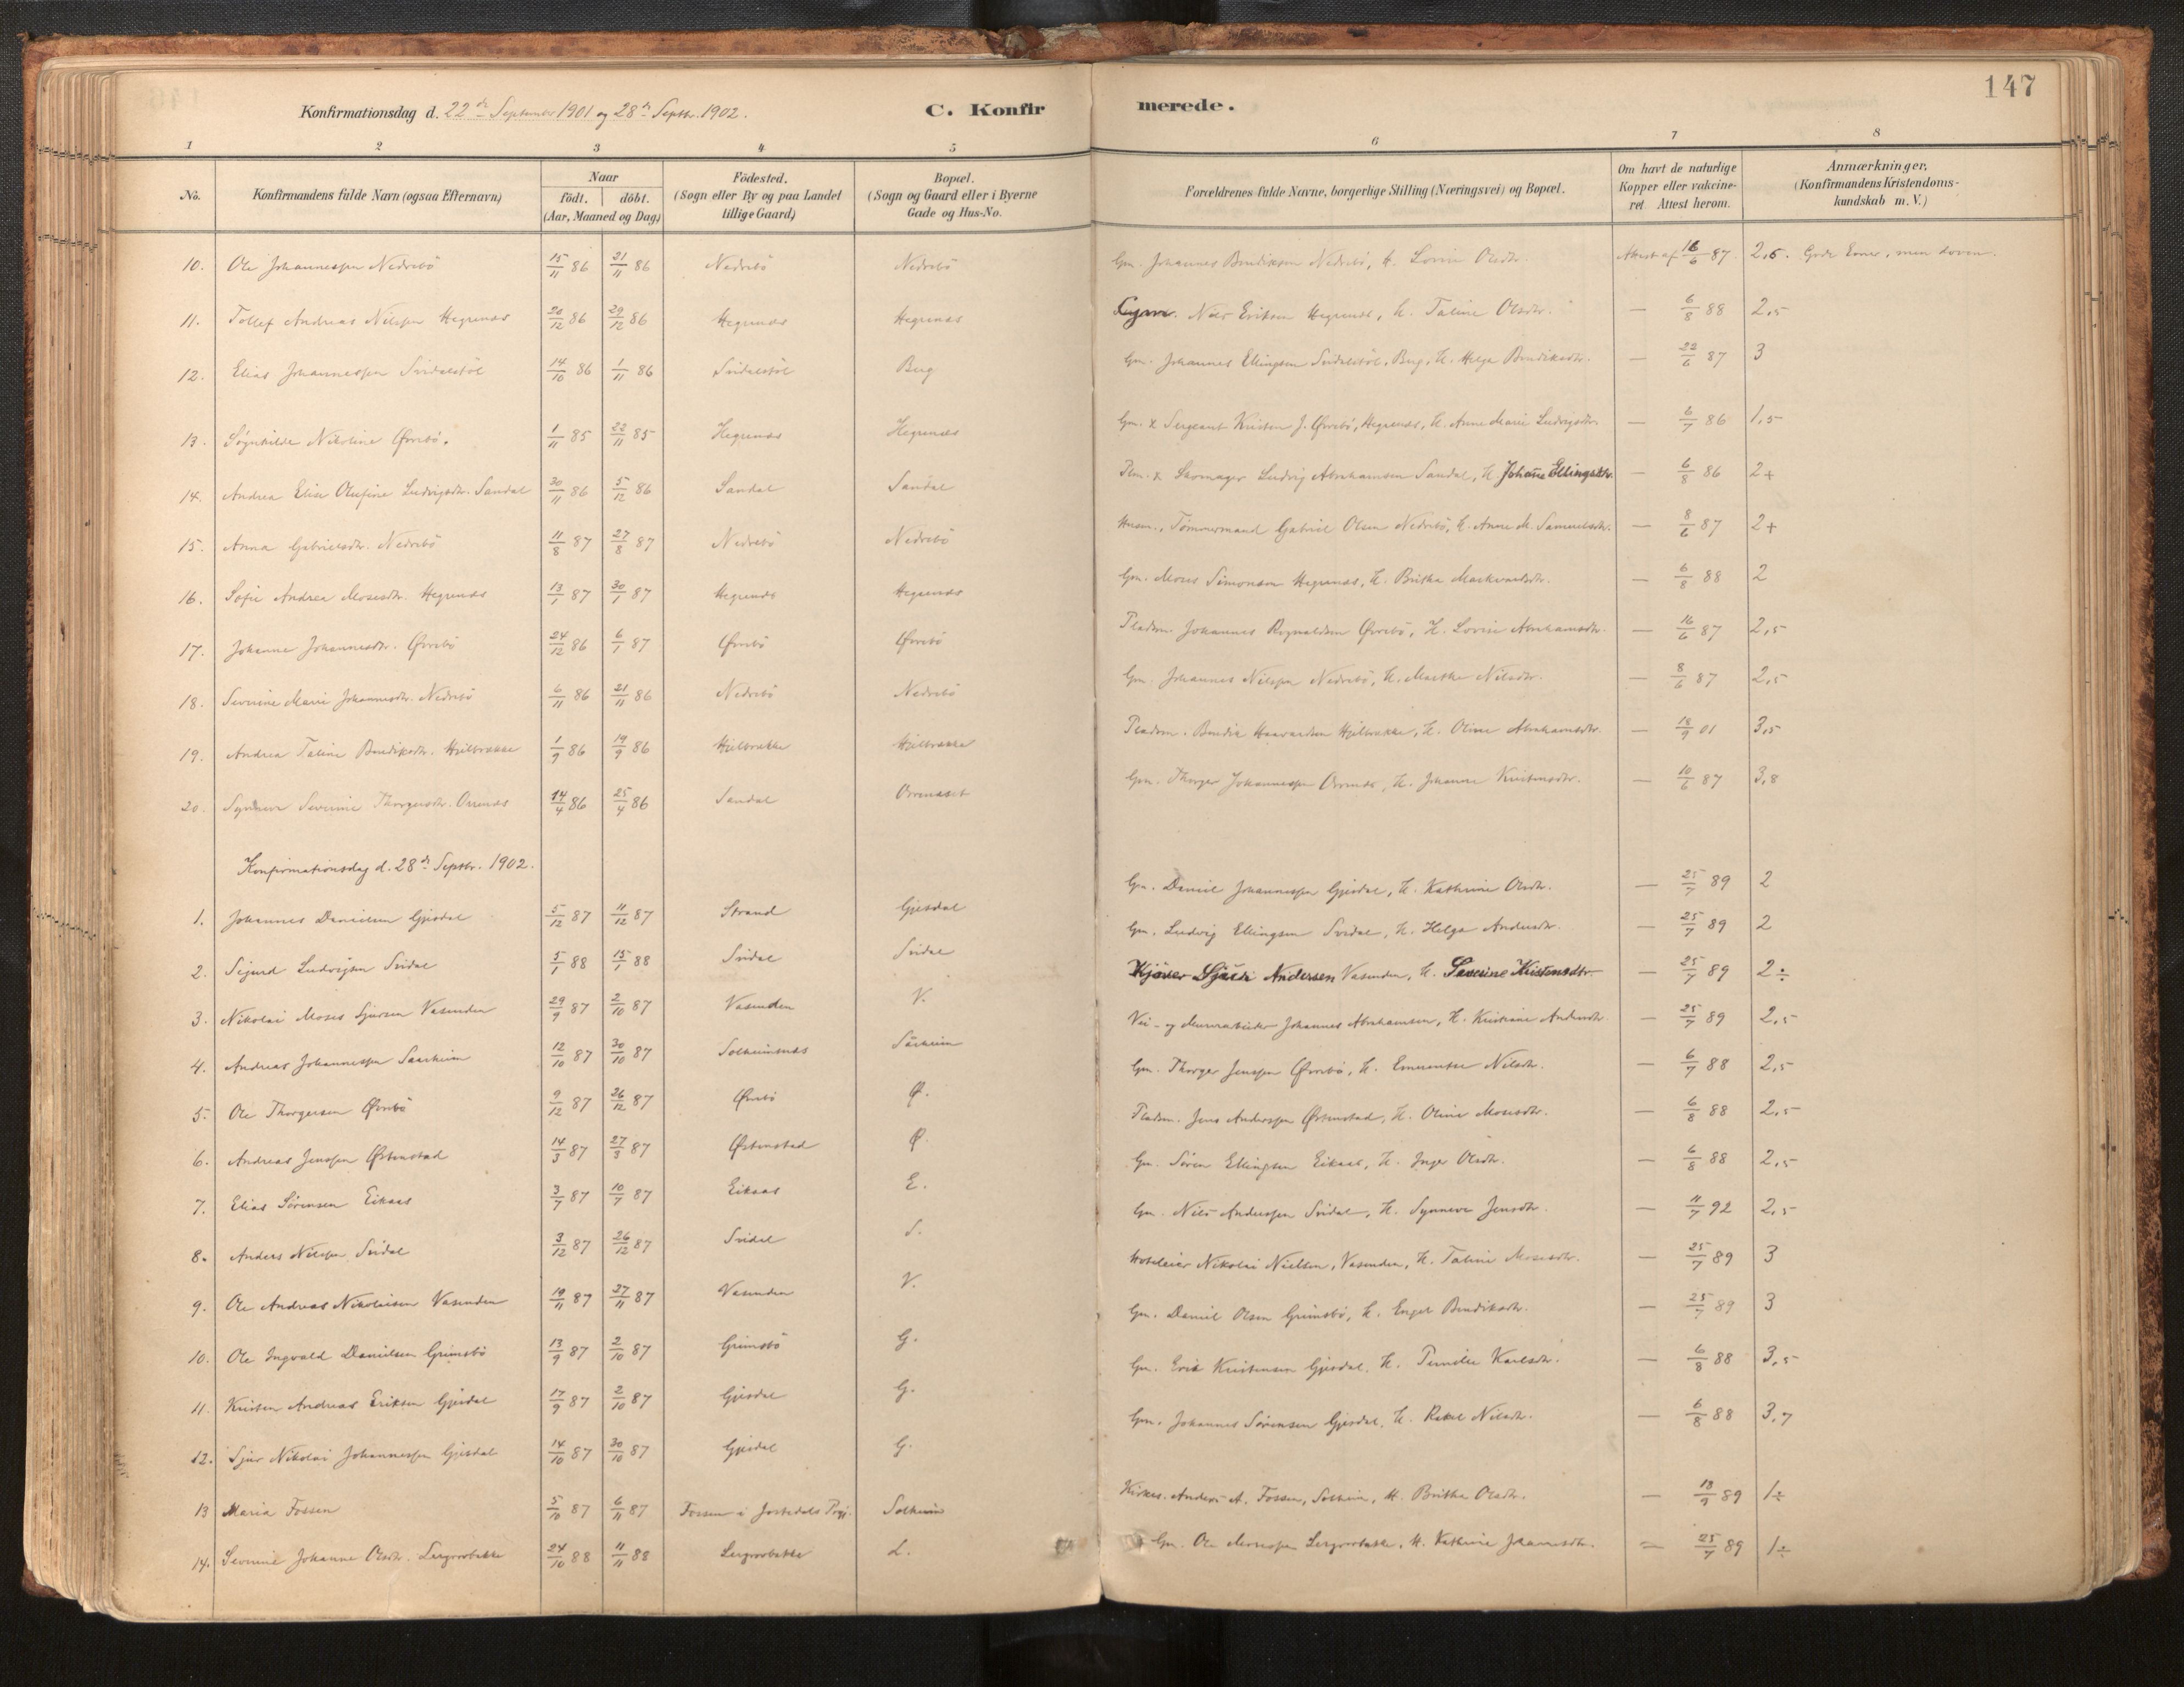 147
Konfirmationsdag d. 22de September 1901 og 28de Septbr. 1902.
C. Konfirmerede.
1 2 3 4 5 6 7 8
No. Konfirmandens fulde Navn (ogsaa Efternavn) Naar født. døbt. (Aar, Maaned og Dag) Fødested. (Sogn eller By og paa Landet tillige Gaard) Bopæl. (Sogn og Gaard eller i Byerne Gade og Hus-No. Forældrenes fulde Navne, borgerlige Stilling (Næringsvei) og Bopæl. Om havt de naturlige Kopper eller vakcineret. Attest herom. Anmærkninger, (Konfirmandens Kristendomskundskab m. V.)
10. Ole Johannessen Nedrebö 15/11 86 21/11 86 Nedrebö Nedrebö Gm. Johannes Bendiksen Nedrebö, H. Lovise Olsdtr. Attest af 16/6 87 2,5. Gode Evner, men doven.
11. Tollef Andreas Nilssen Hegrenæs 20/12 86 29/12 86 Hegrenæs Hegrenæs Nils Eriksen Hegrenæs, H. Taline Olsdtr. — 6/8 88 2,5
12. Elias Johannessen Svidalstöl 14/10 86 1/11 86 Svidalstöl Berg Gm. Johannes Ellingsen Svidalstöl, Berg, H. Helga Bendiksdtr. — 22/6 87 3
13. Nikoline Øvrebö. 1/11 85 22/11 85 Hegrenæs Hegrenæs Gm. & Sergeant Kristen J. Øvrebö, Hegrenæs, H. Anne Marie Ludvigsdtr. — 6/7 86 1,5
14. Andrea Elise Olufine Ludvigsdtr. Sandal 30/11 86 5/12 86 Sandal Sandal Plm. & Skomager Ludvig Abrahamsen Sandal, H. Johanne Ellingsdtr. — 6/8 86 2+
15. Anna Gabrielsdtr. Nedrebö 11/8 87 27/8 87 Nedrebö Nedrebö Husm., Tømmermand Gabriel Olsen Nedrebö, H. Anne M. Samuelsdtr. — 8/6 87 2+
16. Sofie Andrea Mosesdtr. Hegrenæs 13/1 87 30/1 87 Hegrenæs Hegrenæs Gm. Moses Simonsen Hegrenæs, H. Brithe Markvardsdtr. — 6/8 88 2
17. Johanne Johannesdtr. Øvrebö 24/12 86 6/1 87 Øvrebö Øvrebö Pladsm. Johannes Rognaldsen Øvrebö, H. Lovise Abrahamsdtr. — 16/6 87 2,5
18. Severine Marie Johannesdtr. Nedrebö 6/11 86 21/11 86 Nedrebö Nedrebö Gm. Johannes Nilssen Nedrebö, H. Marthe Nilsdtr. — 8/6 87 2,5
19. Andrea Taline Bendiksdtr. Hjelbrække 1/9 86 19/9 86 Hjelbrække Hjelbrække Pladsm. Bendik Haavardsen Hjelbrække, H. Oline Abrahamsdtr. — 18/9 01 3,5
20. Synneva Severine Thorgersdtr. Orrenæs 14/4 86 25/4 86 Sandal Orrenæset Gm. Thorger Johannessen Orrenæs, H. Johanne Kristensdtr. — 10/6 87 3,8
Konfirmationsdag d. 28de Septbr. 1902.
1. Johannes Danielsen Gjesdal 5/12 87 11/12 87 Strand Gjesdal Gm. Daniel Johannessen Gjesdal, H. Kathrine Olsdtr. — 25/7 89 2
2. Sigurd Ludvigsen Svidal 5/1 88 15/1 88 Svidal Svidal Gm. Ludvig Ellingsen Svidal, H. Helga Andersdtr. — 25/7 89 2
3. Nikolai Moses Sjursen Vasenden 29/9 87 2/10 87 Vasenden V. Sjur Andersen Vasenden, H. Severine Kristensdtr. — 25/7 89 2÷
4. Andreas Johannessen Saarheim 12/10 87 30/10 87 Solheimsnæs Sårheim Vei- og Murarbeider Johannes Abrahamsen, H. Kristiane Andersdtr. — 25/7 89 2,5
5. Ole Thorgersen Øvrebö 9/12 87 26/12 87 Øvrebö Ø. Gm. Thorger Jenssen Øvrebö, H. Emerentse Nilsdtr. — 6/7 88 2,5
6. Andreas Jenssen Østenstad 14/3 87 27/3 87 Østenstad Ø. Pladsm. Jens Anderssen Østenstad, H. Oline Mosesdtr. — 6/8 88 2,5
7. Elias Sørensen Eikaas 3/7 87 10/7 87 Eikaas E. Gm. Søren Ellingsen Eikaas, H. Inger Olsdtr. — 6/8 88 2,5
8. Anders Nilssen Svidal 3/12 87 26/12 87 Svidal S. Gm. Nils Anderssen Svidal, H. Synneve Jensdtr. — 11/7 92 2,5
9. Ole Andreas Nikolaisen Vasenden 19/11 87 27/11 87 Vasenden V. Hoteleier Nikolai Nielsen, Vasenden, H. Taline Mosesdtr. — 25/7 89 3
10. Ole Ingvald Danielsen Grimsbö 13/9 87 2/10 87 Grimsbö G. Gm. Daniel Olsen Grimsbö, H. Engel Bendiksdtr. — 25/7 89 3
11. Kristen Andreas Eriksen Gjesdal 17/9 87 2/10 87 Gjesdal G. Gm. Erik Kristensen Gjesdal, H. Pernille Karlsdtr. — 6/8 88 3,5
12. Sjur Nikolai Johannessen Gjesdal 14/10 87 30/10 87 Gjesdal G. Gm. Johannes Sørensen Gjesdal, H. Rakel Nilsdtr. — 6/8 88 3,7
13 Maria Fossen 5/10 87 6/11 87 Fossen i Jostedals Prgj. Solheim Kirkes. Anders A. Fossen, Solheim, H. Brithe Olsdtr. — 13/9 89 1÷
14. Severine Johanne Olsdtr. Lergrovbakke 24/10 88 11/11 88 Lergrovbakke L. Gm. Ole Monssen Lergrovbakke, H. Kathrine Johannesdtr. — 25/7 89 1÷